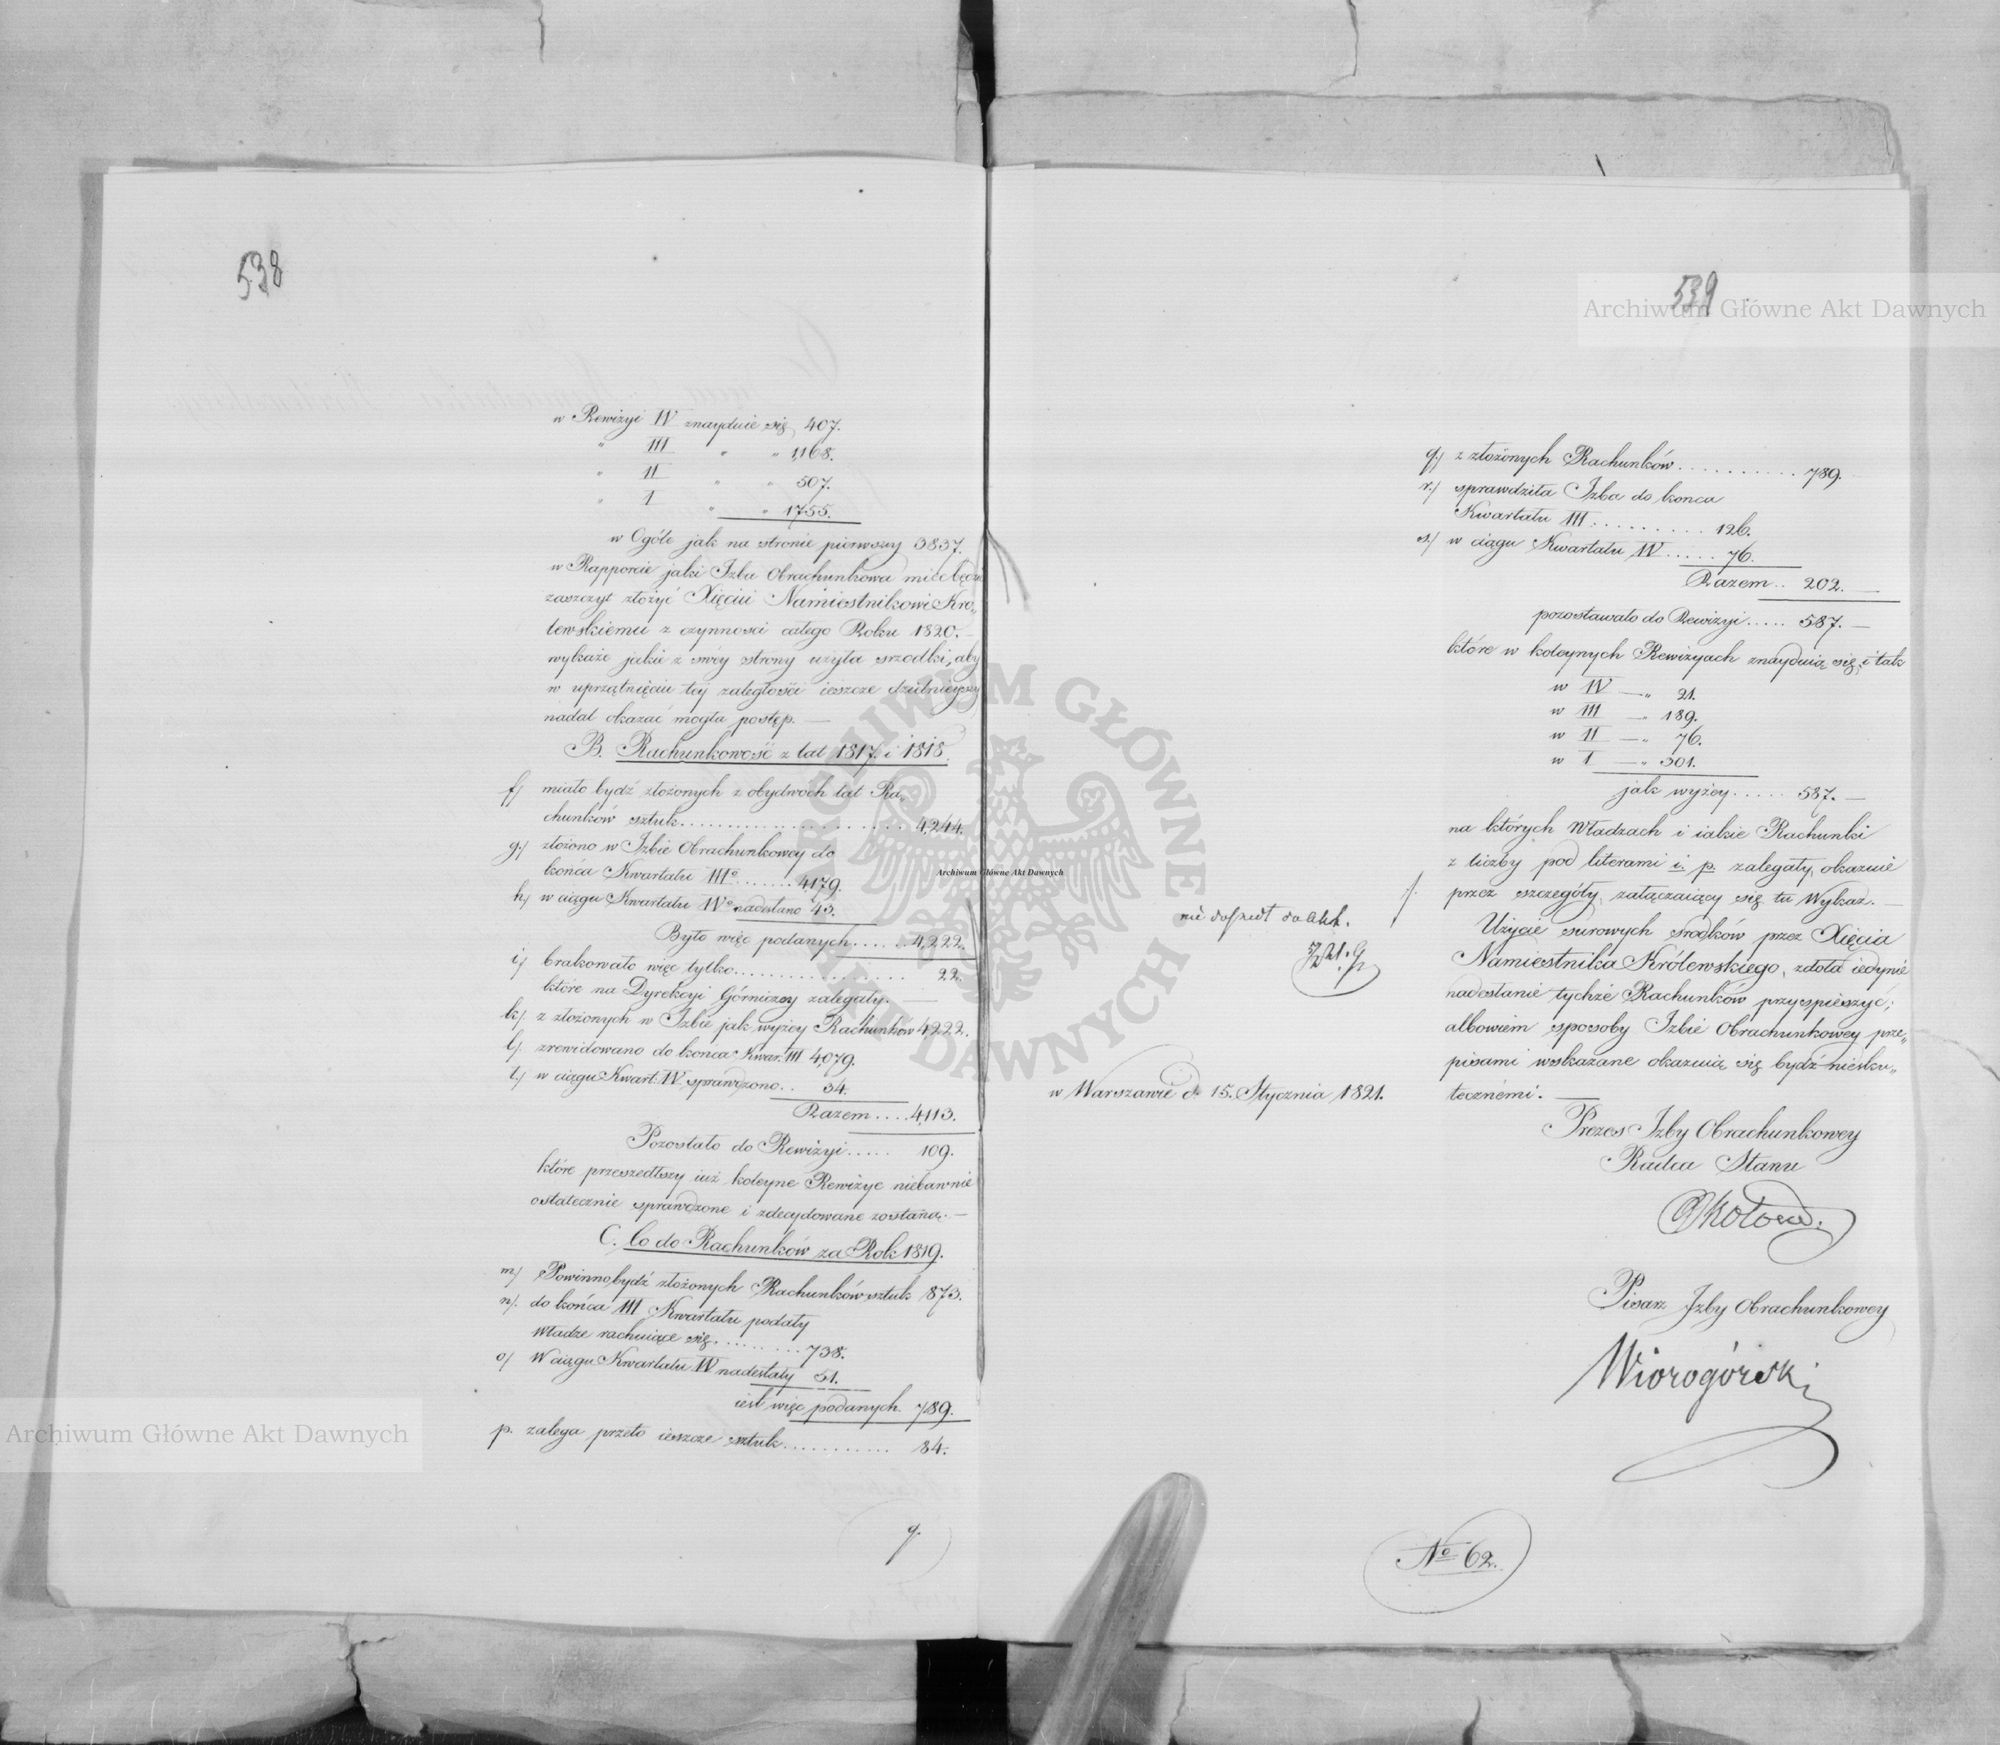 538
w Rewizyi IV znayduie się 407.
" III " " 1,168.
" II " " 507.
" I " " 1755.
w Ogóle jak na stronie pierwszy 3837.
w Rapporcie jaki Izba Obrachunkowa mieć będzie
zaszczyt złożyć Xięciu Namiestnikowi Kro„
lewskiemu z czynności całego Roku 1820.
wykaże jakie z swéy strony użyła srzodki, aby
w uprzątnięciu téy zaległości ieszcze dzielnieyszy
nadal okazać mogła postęp. —
B. Rachunkowość z lat 1817. i 1818.
f/ miało bydź złożonych z obydwóch lat Ra„
chunków sztuk..................... 4,244.
g/ złożono w Izbie Obrachunkowey do
końca Kwartału IIIo....... 4,179.
h/ w ciągu Kwartału IVo nadesłano 43.
Było więc podanych...... 4,222.
i/ brakowało więc tylko................. 22.
które na Dyrekcyi Górniczey zalegały. —
k/ z złożonych w Izbie jak wyżéy Rachunków 4,222.
l/ zrewidowano do końca Kwar. III 4,079.
ł/ w ciągu Kwart. IV. sprawdzono.. 34.
Razem.... 4,113.
Pozostało do Rewizyi..... 109.
które przeszedłszy iuż koleyne Rewizye niebawnie
ostatecznie sprawdzone i zdecydowane zostaną. —
C. Co do Rachunków za Rok 1819.
m/ Powinno bydź złożonych Rachunków sztuk 873.
n/. do końca III Kwartału podały
Władze rachuiące się.......... 738.
o/ W ciągu Kwartału IV nadesłały 51.
iest więc podanych. 789.
p. zalega przeto ieszcze sztuk........... 84.
q.
539
q/ z złożonych Rachunków............ 789.
r./ sprawdziła Izba do końca
Kwartału III.......... 126.
s./ w ciągu Kwartału IV..... 76.
Razem.. 202. —
pozostawało do Rewizyi..... 587. —
które w koleynych Rewizyach znayduią się, i tak
w IV — " 21.
w III — " 189.
w II — " 76.
w I — " 301.
jak wyżey..... 587. —
na których Władzach i iakie Rachunki
z liczby pod literami i. p. zalegały, okazuie
przez szczegóły, załączaiący się tu Wykaz. —
Użycie surowych srodków przez Xięcia
Namiestnika Królewskiego, zdoła iedynie
nadesłanie tychże Rachunków przyspieszyć;
albowiem sposoby Izbie Obrachunkowey prze„
pisami wskazane okazuią się bydź niesku„
tecznémi. —
w Warszawie d. 15. Stycznia 1821.
Prezes Izby Obrachunkowey
Radca Stanu
Pisarz Izby Obrachunkowey
Wiorogórski
No 62.
Archiwum Główne Akt Dawnych
Archiwum Główne Akt Dawnych
Archiwum Główne Akt Dawnych
ARCHIWUM GŁÓWNE AKT DAWNYCH